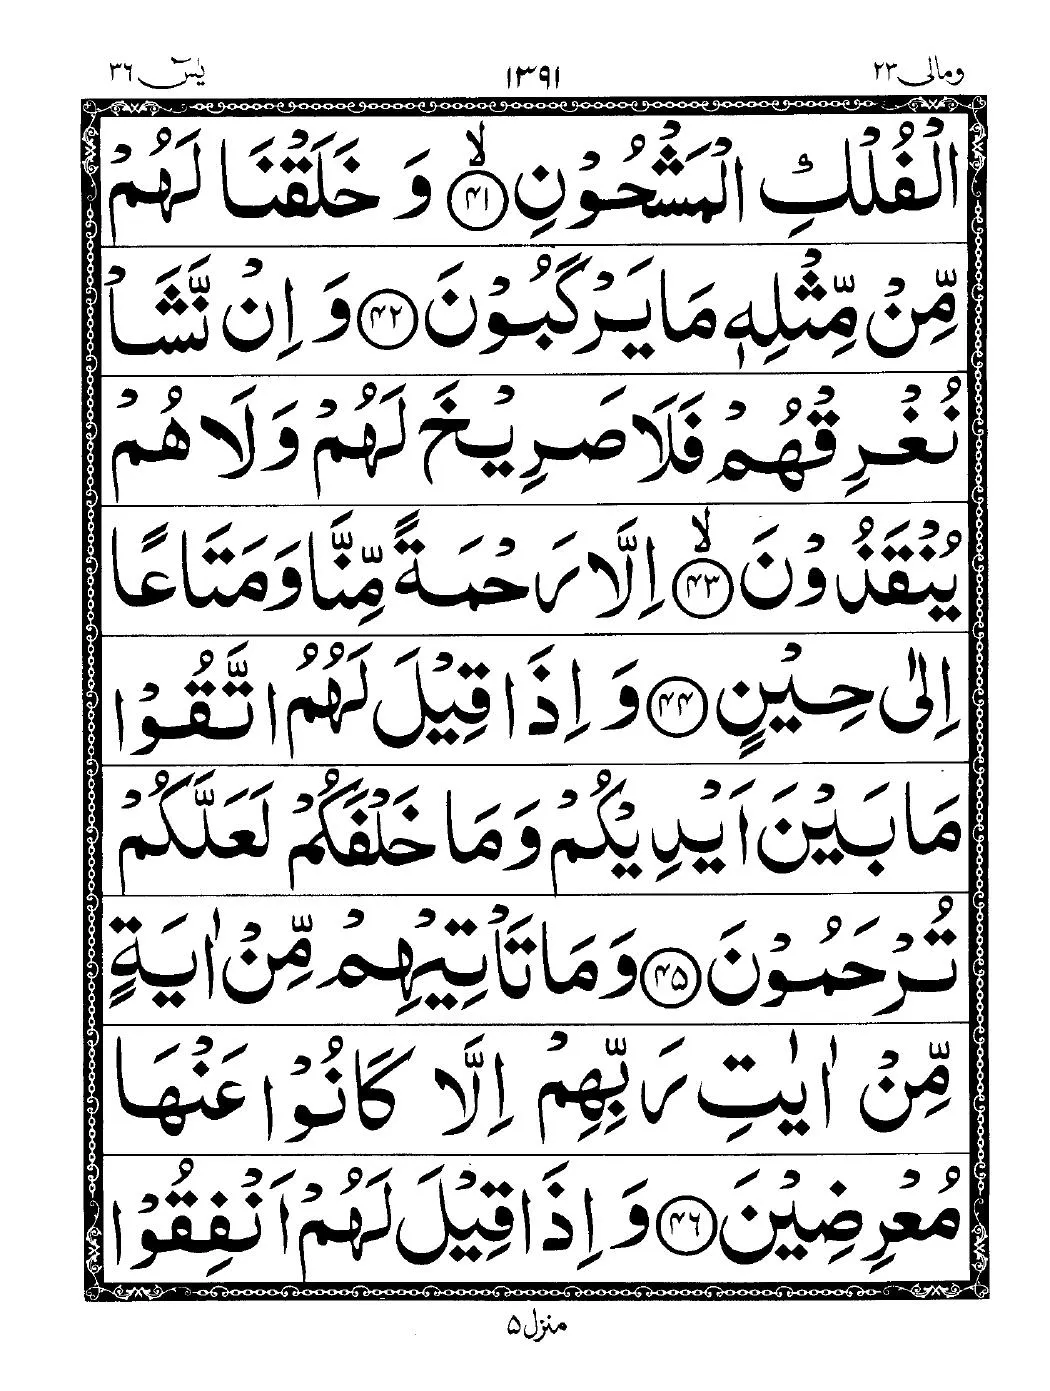 ومالی ۲۳ ۱۳۹۱ یٰسٓ ۳۶
الْفُلْكِ الْمَشْحُوْنِ ﴿۴۱﴾ۙ وَ خَلَقْنَا لَهُمْ
مِّنْ مِّثْلِهٖ مَا يَرْكَبُوْنَ ﴿۴۲﴾ وَ اِنْ نَّشَاْ
نُغْرِقْهُمْ فَلَا صَرِيْخَ لَهُمْ وَلَا هُمْ
يُنْقَذُوْنَ ﴿۴۳﴾ۙ اِلَّا رَحْمَةً مِّنَّا وَمَتَاعًا
اِلٰى حِيْنٍ ﴿۴۴﴾ وَ اِذَا قِيْلَ لَهُمُ اتَّقُوْا
مَا بَيْنَ اَيْدِيْكُمْ وَمَا خَلْفَكُمْ لَعَلَّكُمْ
تُرْحَمُوْنَ ﴿۴۵﴾ وَمَا تَاْتِيْهِمْ مِّنْ اٰيَةٍ
مِّنْ اٰيٰتِ رَبِّهِمْ اِلَّا كَانُوْا عَنْهَا
مُعْرِضِيْنَ ﴿۴۶﴾ وَ اِذَا قِيْلَ لَهُمْ اَنْفِقُوْا
منزل ۵